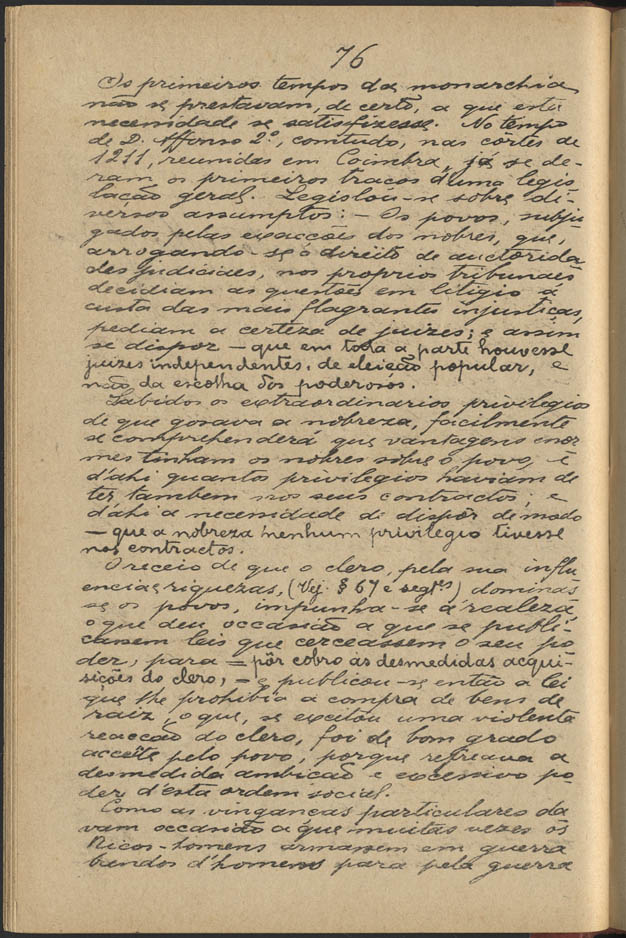 76
Os primeiros tempos da monarchia
não se prestavam, de certo, a que esta
necessidade se satisfizesse. No tempo
de D. Affonso 2º, comtudo, nas côrtes de
1211, reunidas em Coimbra, já se de-
ram os primeiros traços d'uma legis
lação geral. Legislou-se sobre di-
versos assumptos: - Os povos, subju
gados pelas exacções dos nobres, que,
arrogando-se o direito de auctorida
des judiciaes, nos proprios tribunaes
decidiam as questões em litigio á
custa das mais flagrantes injustiças,
pediam a certeza de juizes; e assim
se dispoz - que em toda a parte houvesse
juizes independentes, de eleição popular, e
não da escolha dos poderosos.
Sabidos os extraordinarios privilegios
de que gosava a nobreza, facilmente
se comprehenderá que vantagens enor
mes tinham os nobres sobre o povo, e
d'ahi quantos privilegios haviam de
ter tambem nos seus contractos; e
d'ahi a necessidade de dispôr de modo
- que a nobreza nenhum privilegio tivesse
nos contractos.
O receio de que o clero, pela sua influ
encia e riquezas, (Vej. § 67 e segtes) dominas
se os povos, impunha-se á realeza,
o que deu occasião a que se publi-
cassem leis que cerceassem o seu po
der, para = pôr cobro ás desmedidas acqui-
sições do clero; - e publicou-se então a lei
que lhe prohibia a compra de bens de
raiz, o que, se excitou uma violenta
reacção do clero, foi de bom grado
acceite pelo povo, porque refreava a
desmedida ambição e excessivo po
der d'esta ordem social.
Como as vinganças particulares da
vam occasião a que muitas vezes os
Ricos-homens armassem em guerra
bandos d'homens para pela guerra